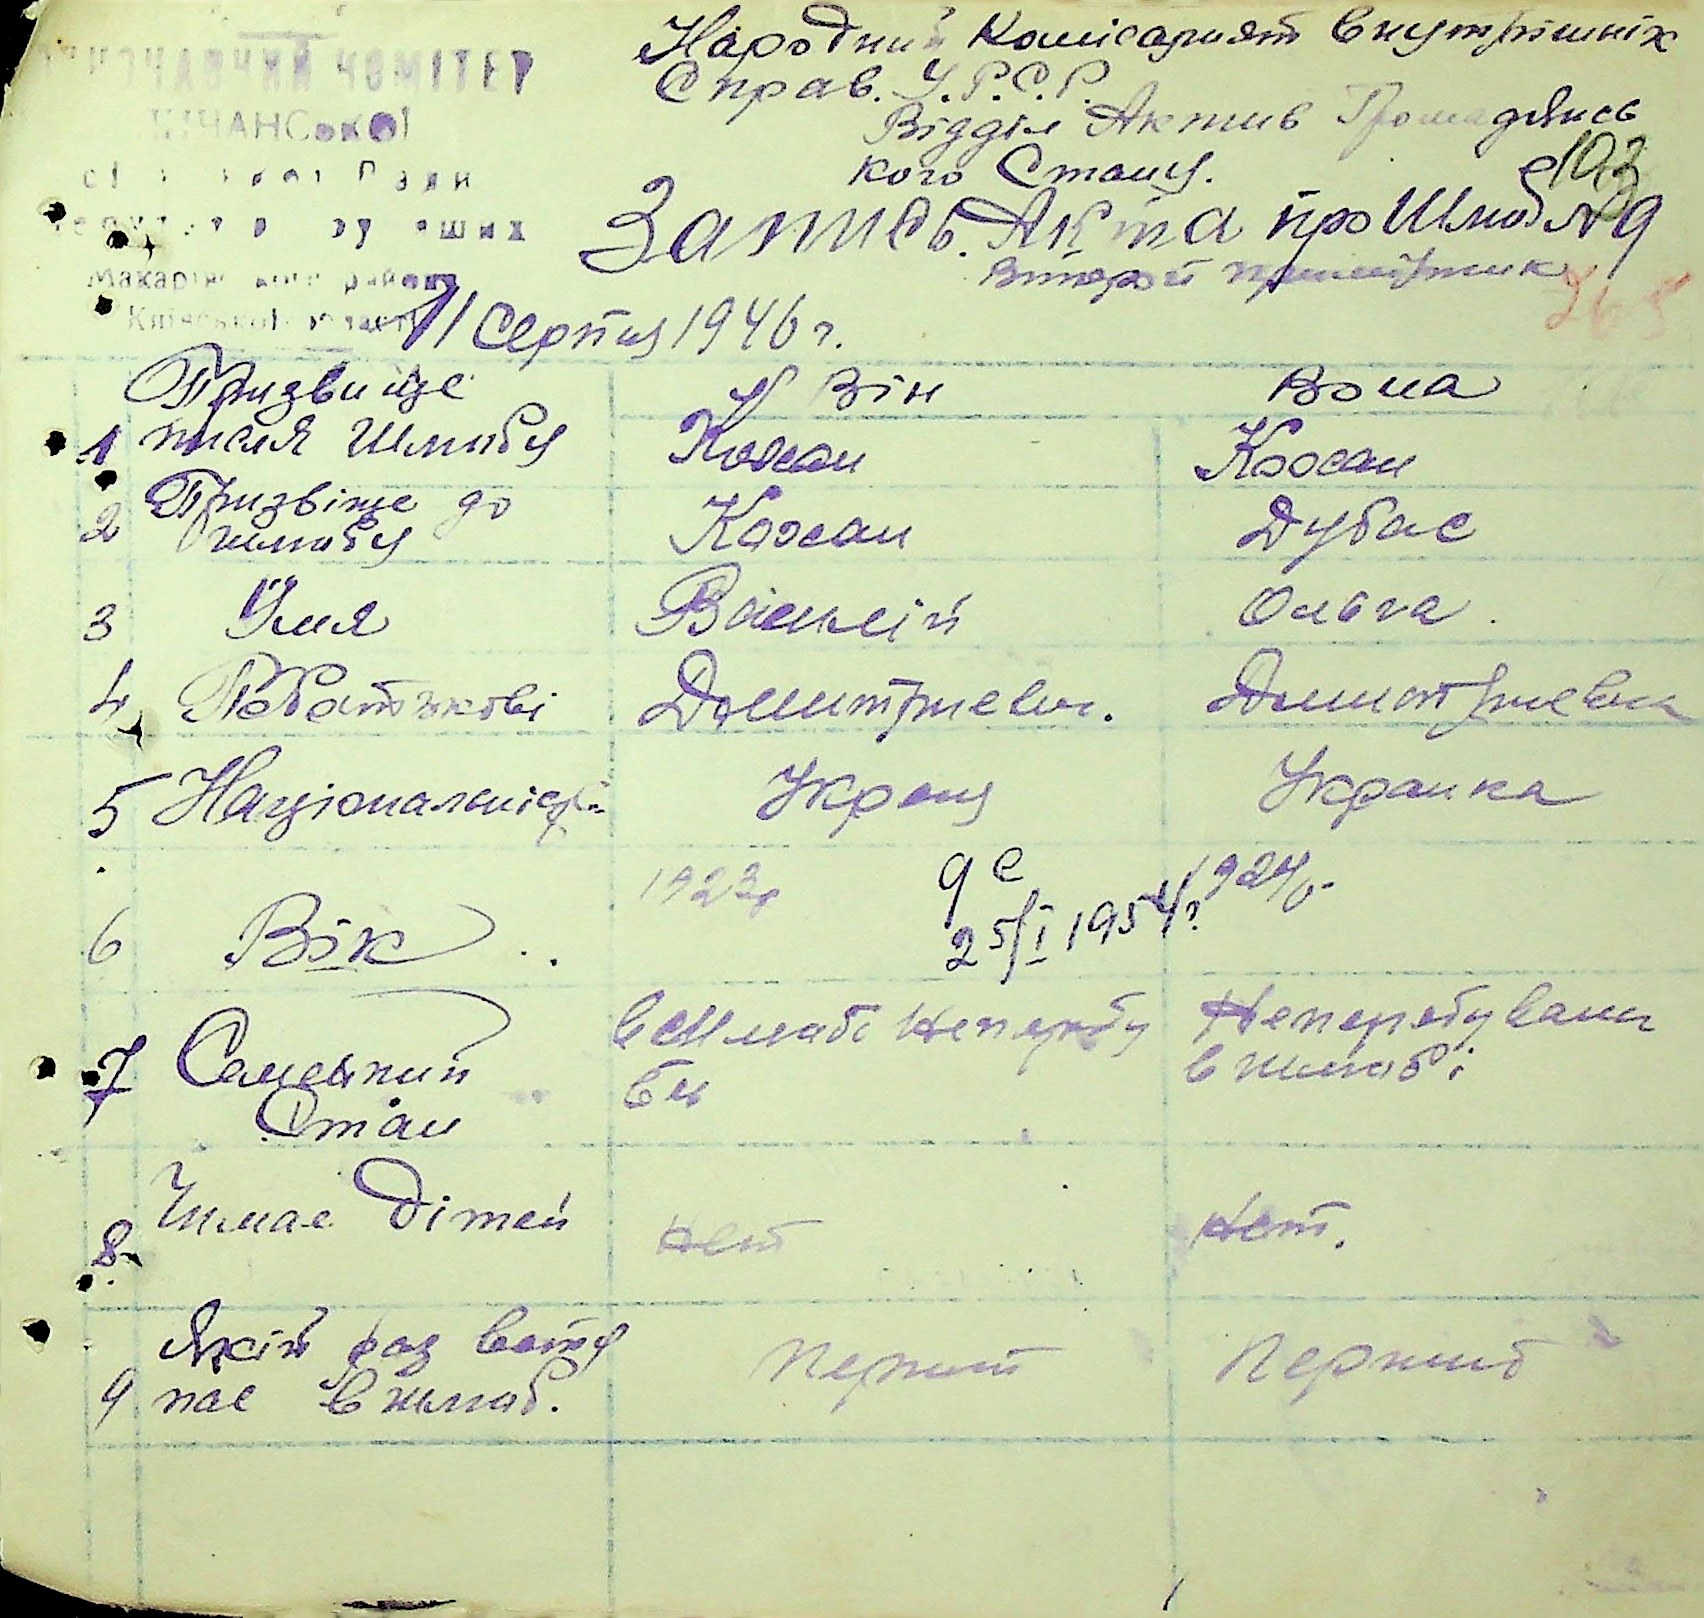 КОМІТЕТ
Народний Комісарият Внутрішніх
Справ. У.Р.С.Р.
Відділ Актив Громадянсь
кого Стану.
103
Запись. Акта про Шлюб №9
Второй примірник
265
11 Серпня 1946 г.
Призвище після Шлюбу
Він
Вона
1
Кожан
Кожан
2 Призвіще до шлюбу
Кожан
Дубас
3 Имя
Василій
Ольга
4 Побатькові
Домитриевич.
Домитриевна
5 Національність
Укранц
Украинка
6 Вік
1923р
9 е
25/I 1954 г
1924р.
7 Семейний Стан
в Шлюбі Неперебу
вы
Неперебувала
в шлюбі
8 Чимае дітей
Нет
Нет.
9 Якій раз всту
пае в шлюб.
Перший
Перший